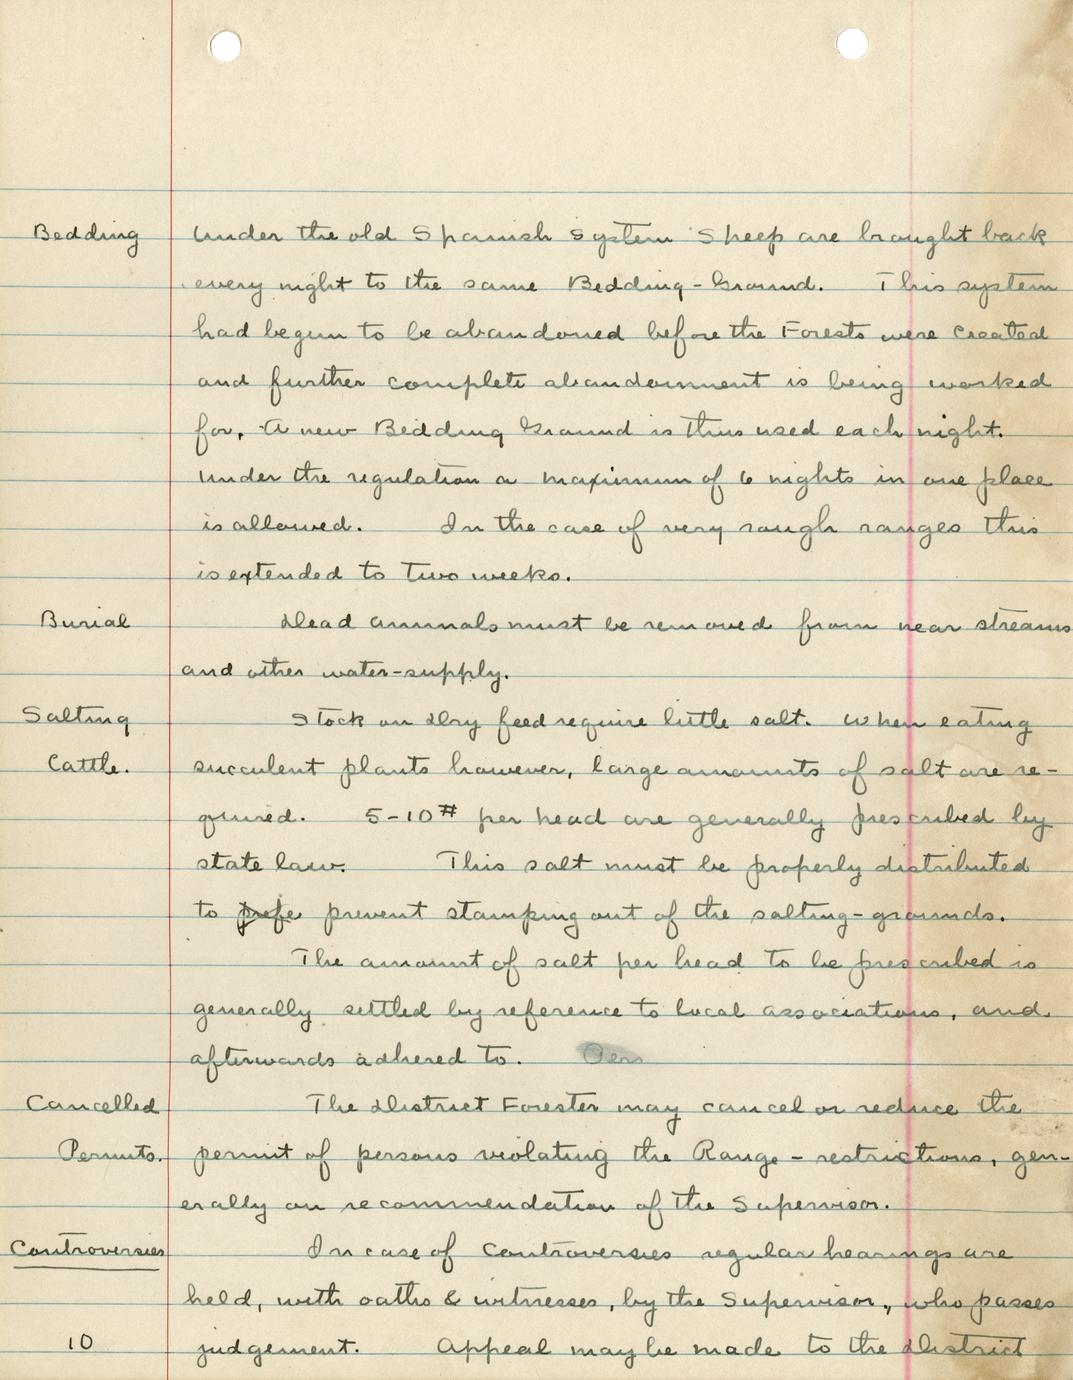 Bedding Under the old Spanish system Sheep are brought back
every night to the same Bedding-Ground. This system
had begun to be abandoned before the Forests were created
and further complete abandonment is being worked
for, A new Bedding Ground is thus used each night.
Under the regulation a maximum of 6 nights in one place
is allowed. In the case of very rough ranges this
is extended to two weeks.
Burial Dead animals must be removed from near streams
and other water-supply.
Salting Stock on dry feed require little salt. When eating
Cattle. succulent plants however, large amounts of salt are re-
quired. 5-10# per head are generally prescribed by
state law. This salt must be properly distributed
to prefe prevent stamping out of the salting-grounds.
The amount of salt per head to be prescribed is
generally settled by reference to local associations, and.
afterwards adhered to. Pers
Cancelled The District Forester may cancel or reduce the
Permits. permit of persons violating the Range-restrictions, gen-
erally on recommendation of the Supervisor.
Controversies In case of Controversies regular hearings are
held, with oaths & witnesses, by the Supervisor, who passes
10 judgement. Appeal may be made to the District